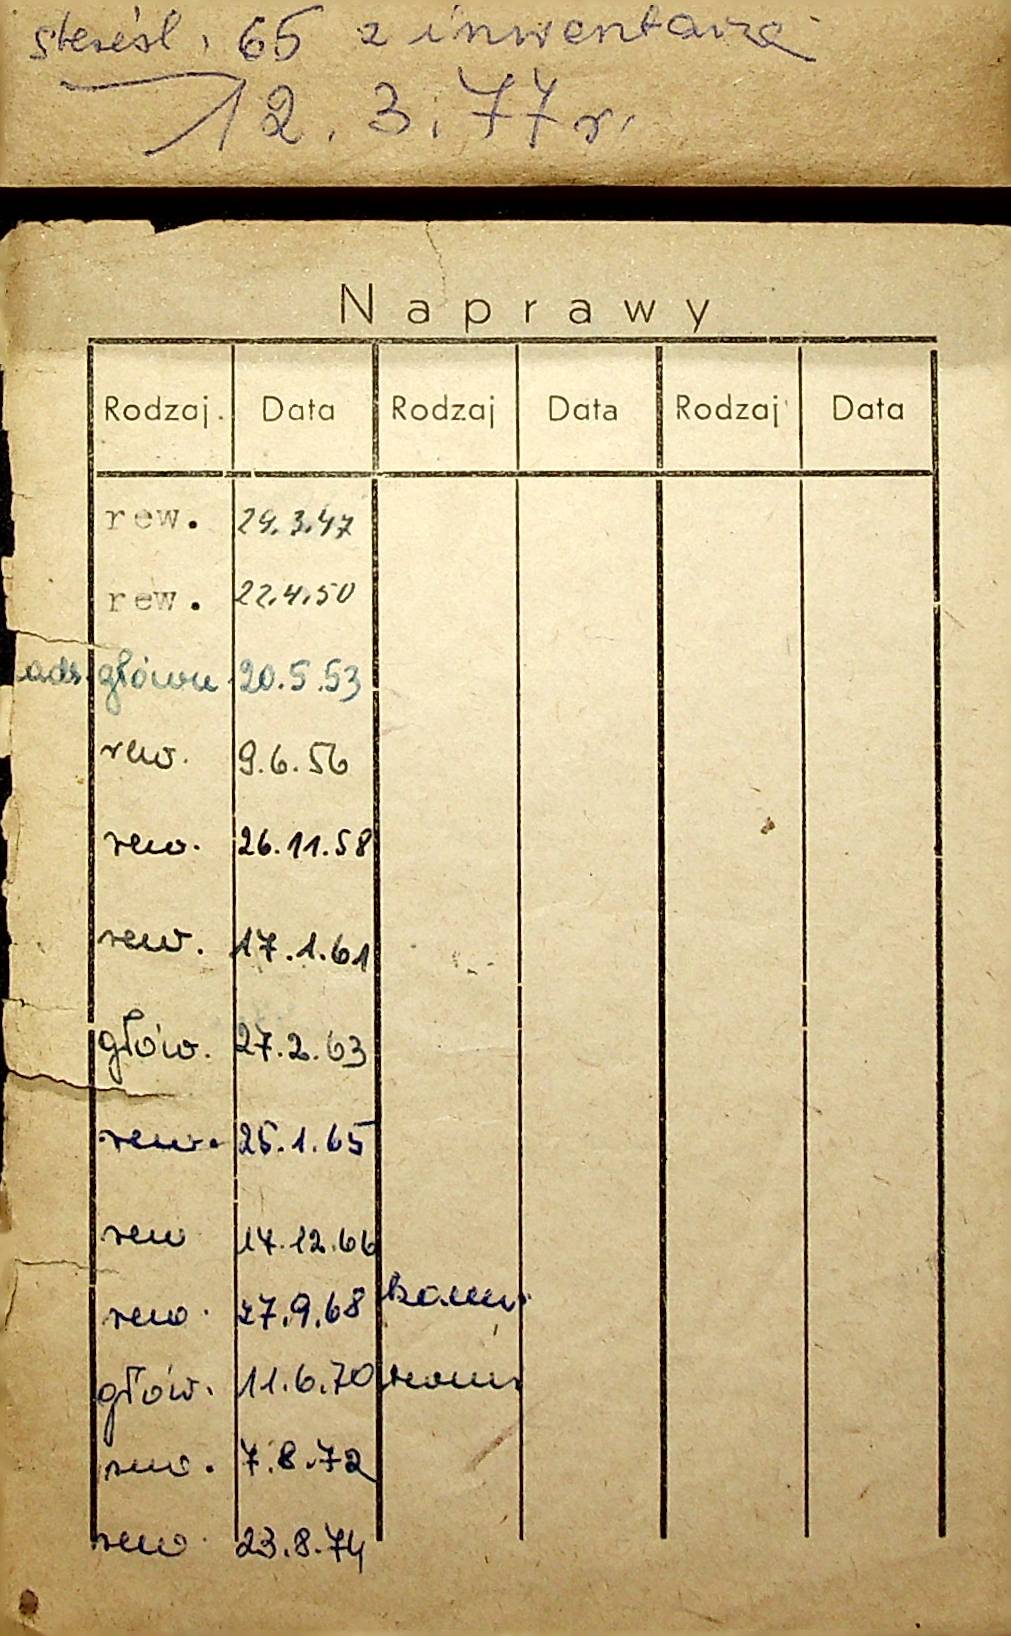 65 z inwentarza
12.3.77r.
Naprawy
Rodzaj Data Rodzaj Data Rodzaj Data
rew. 29.3.47
rew. 22.4.50
główn 20.5.53
rew. 9.6.56
rew. 26.11.58
rew. 17.1.61
głów. 27.2.63
rew. 25.1.65
rew 14.12.66
rew. 27.9.68
głów. 11.6.70
rew. 7.8.72
rew. 23.8.74